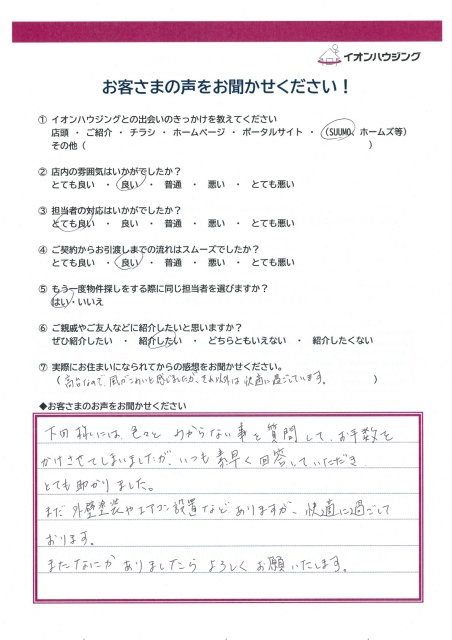 イオンハウジング
お客さまの声をお聞かせください！
① イオンハウジングとの出会いのきっかけを教えてください
店頭 ・ ご紹介 ・ チラシ ・ ホームページ ・ ポータルサイト ・ （SUUMO、ホームズ等）
その他（ ）
② 店内の雰囲気はいかがでしたか？
とても良い ・ 良い ・ 普通 ・ 悪い ・ とても悪い
③ 担当者の対応はいかがでしたか？
とても良い ・ 良い ・ 普通 ・ 悪い ・ とても悪い
④ ご契約からお引渡しまでの流れはスムーズでしたか？
とても良い ・ 良い ・ 普通 ・ 悪い ・ とても悪い
⑤ もう一度物件探しをする際に同じ担当者を選びますか？
はい ・ いいえ
⑥ ご親戚やご友人などに紹介したいと思いますか？
ぜひ紹介したい ・ 紹介したい ・ どちらともいえない ・ 紹介したくない
⑦ 実際にお住まいになられてからの感想をお聞かせください。
（高台なので、風がつよいと感じましたが、それ以外は快適に過ごしています。）
◆お客さまのお声をお聞かせください
下田様には、色々と わからない事を質問して、お手数を
かけさせてしまいましたが、いつも素早く回答していただき、
とても助かりました。
まだ外壁塗装やエアコン設置などありますが、快適に過ごして
おります。
またなにか ありましたら よろしく お願いいたします。